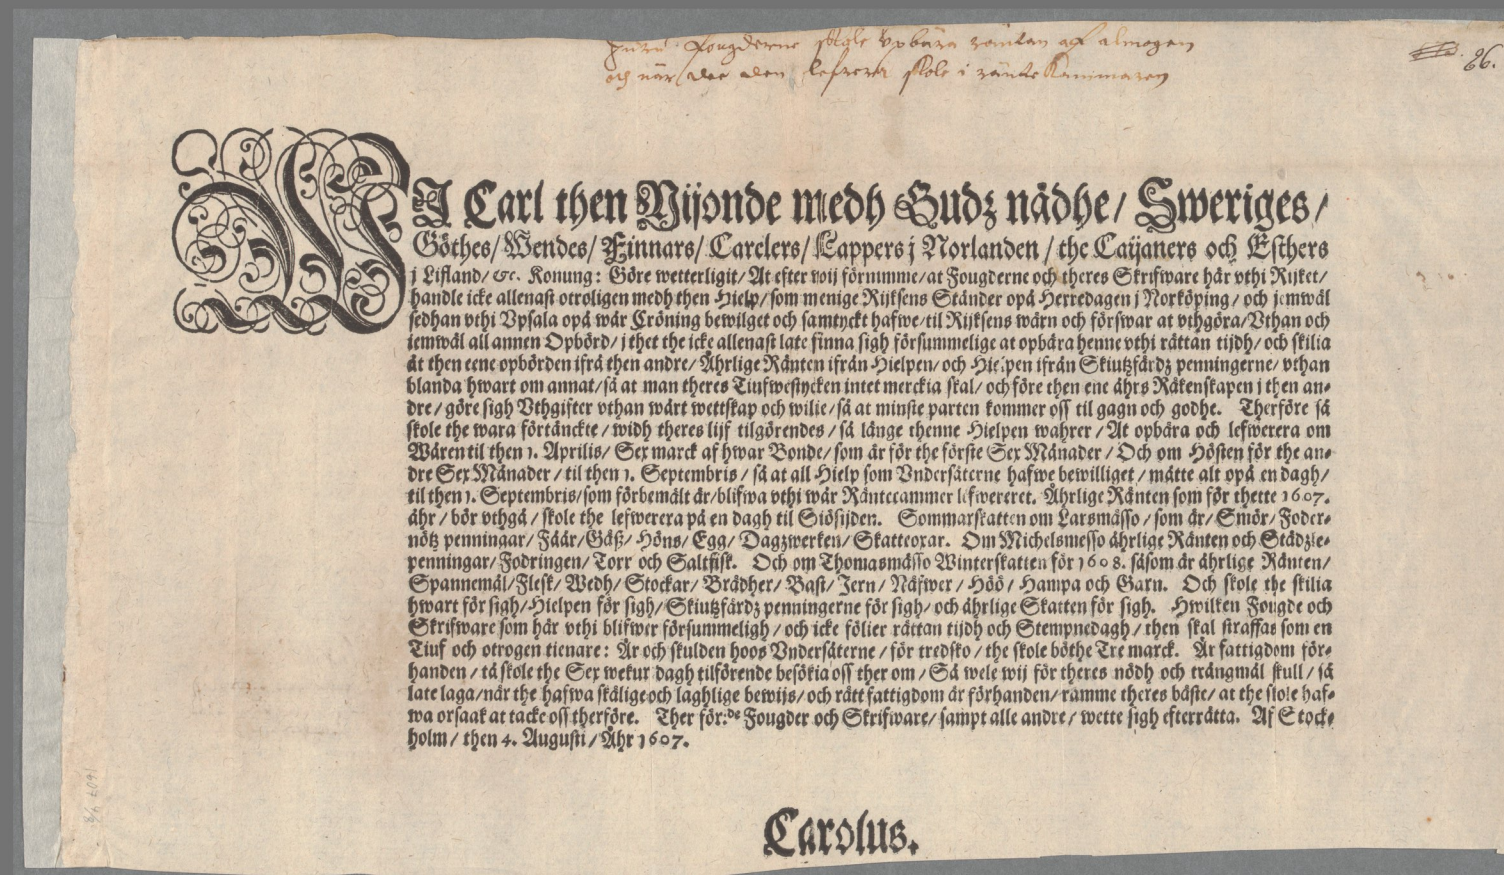 huru fougderne skole Vpbära räntan af almogen
och när dee den lefrera skole i ränte Kammaren
96.
WJ Carl then Nijonde medh Gudz nådhe / Sweriges /
Göthes / Wendes / Finnars / Carelers / Lappers j Norlanden / the Caijaners och Esthers
j Lifland / etc. Konung: Göre wetterligit / At efter wij förnimme / at Fougderne och theres Skrifware här vthi Rijket /
handle icke allenast otroligen medh then Hielp / som menige Rijksens Ständer opå Herredagen j Norköping / och jemwäl
sedhan vthi Vpsala opå wår Cröning bewilget och samtyckt hafwe / til Rijksens wärn och förswar at vthgöra / Vthan och
iemwäl all annen Opbörd / j thet the icke allenast late finna sigh försummelige at opbära henne vthi rättan tijdh / och skilia
åt then eene opbörden ifrå then andre / Åhrlige Ränten ifrån Hielpen / och Hielpen ifrån Skiutzfärdz penningerne / vthan
blanda hwart om annat / så at man theres Tiufwestycken intet merckia skal / och före then ene åhrs Räkenskapen j then an-
dre / göre sigh Vthgifter vthan wårt wettskap och wilie / så at minste parten kommer oss til gagn och godhe. Therföre så
skole the wara förtänckte / widh theres lijf tilgörendes / så länge thenne Hielpen wahrer / At opbära och lefwerera om
Wåren til then 1. Aprilis / Sex marck af hwar Bonde / som är för the förste Sex Månader / Och om Hösten för the an-
dre Sex Månader / til then 1. Septembris / så at all Hielp som Vndersåterne hafwe bewilliget / måtte alt opå en dagh /
til then 1. Septembris / som förbemält är / blifwa vthi wår Räntecammer lefwereret. Åhrlige Ränten som för thette 1607.
åhr / bör vthgå / skole the lefwerera på en dagh til Siösijden. Sommarskatten om Larsmässo / som är / Smör / Foder-
nötz penningar / Fåår / Gäß / Höns / Egg / Dagzwerken / Skatteoxar. Om Michelsmesso åhrlige Ränten och Städzle-
penningar / Fodringen / Torr och Saltfisk. Och om Thomasmässo Winterskatten för 1608. såsom är åhrlige Ränten /
Spannemål / Flesk / Wedh / Stockar / Brädher / Bast / Jern / Näfwer / Höö / Hampa och Garn. Och skole the skilia
hwart för sigh / Hielpen för sigh / Skiutzfärdz penningerne för sigh / och åhrlige Skatten för sigh. Hwilken Fougde och
Skrifware som här vthi blifwer försummeligh / och icke fölier rättan tijdh och Stempnedagh / then skal straffas som en
Tiuf och otrogen tienare: Är och skulden hoos Vndersåterne / för tredsko / the skole böthe Tre marck. Är fattigdom för-
handen / tå skole the Sex wekur dagh tilförende besökia oss ther om / Så wele wij för theres nödh och trångmål skull / så
late laga / när the hafwa skälige och laghlige bewijs / och rätt fattigdom är förhanden / ramme theres bäste / at the skole haf-
wa orsaak at tacke oss therföre. Ther för:de Fougder och Skrifware / sampt alle andre / wette sigh efterrätta. Af Stock-
holm / then 4. Augusti / Åhr 1607.
Carolus.
1607 4/8